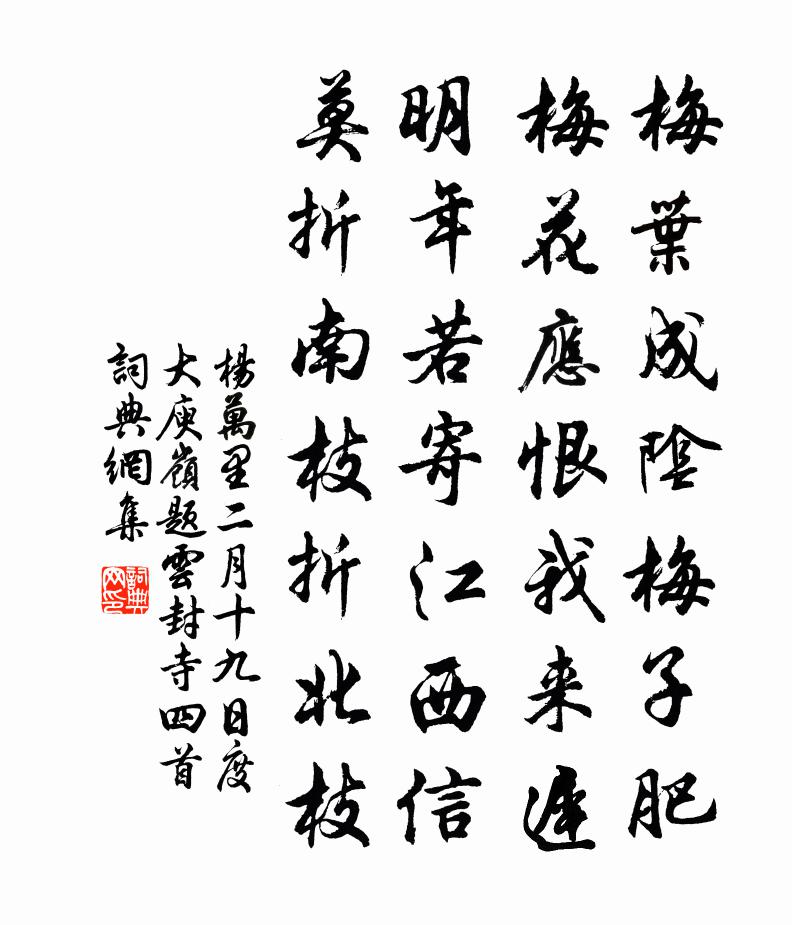 梅葉成陰梅子肥
梅花應恨我来遲
明年若寄江西信
莫折南枝折北枝
楊萬里二月十九日度
大庾嶺题雲封寺四首
詞典網集
詞典
网印